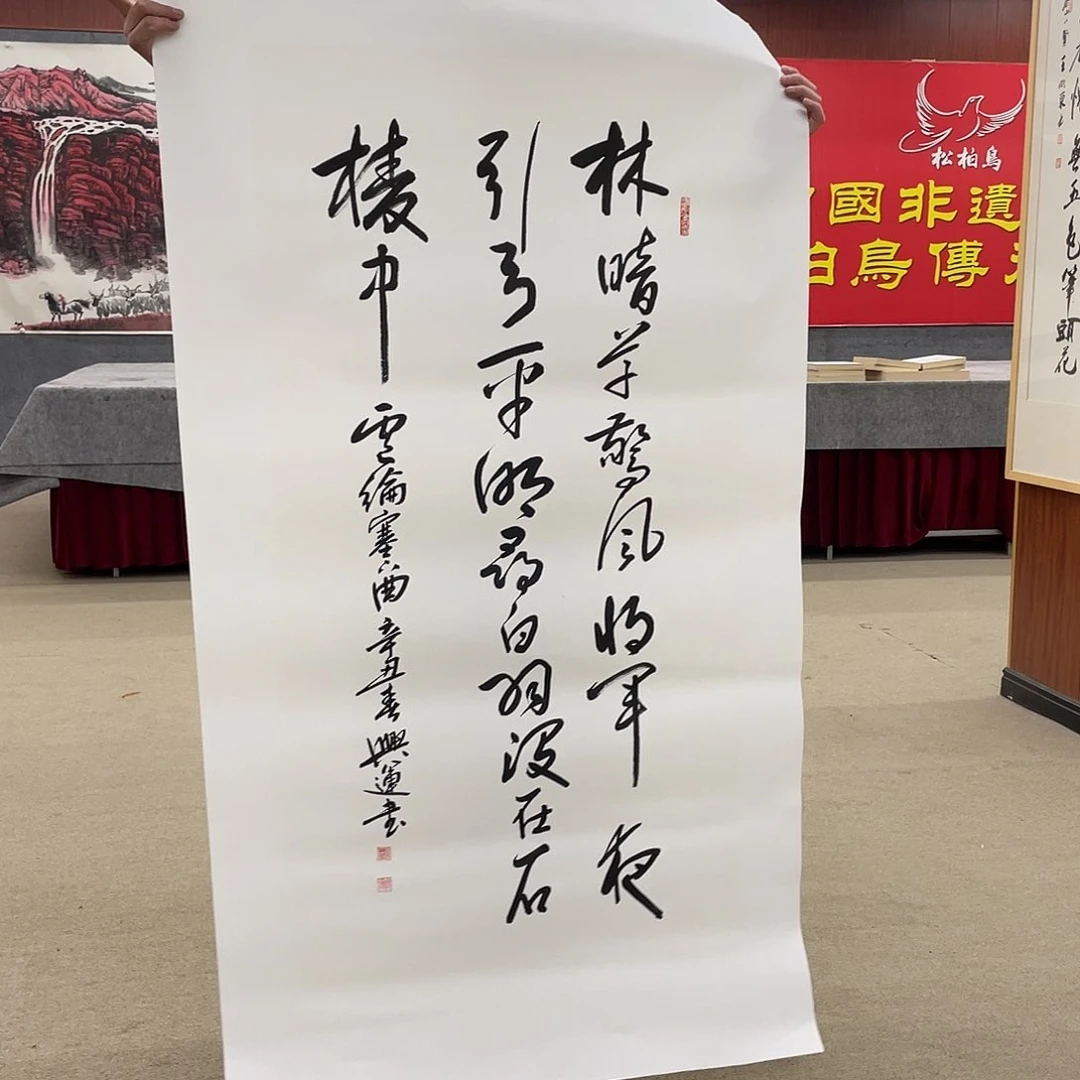 林暗草驚風將軍夜
引弓平明尋白羽没在石
棱中 盧綸塞下曲 辛丑春興運書
松柏鳥
國非遺
柏鳥傳
五色筆頭花